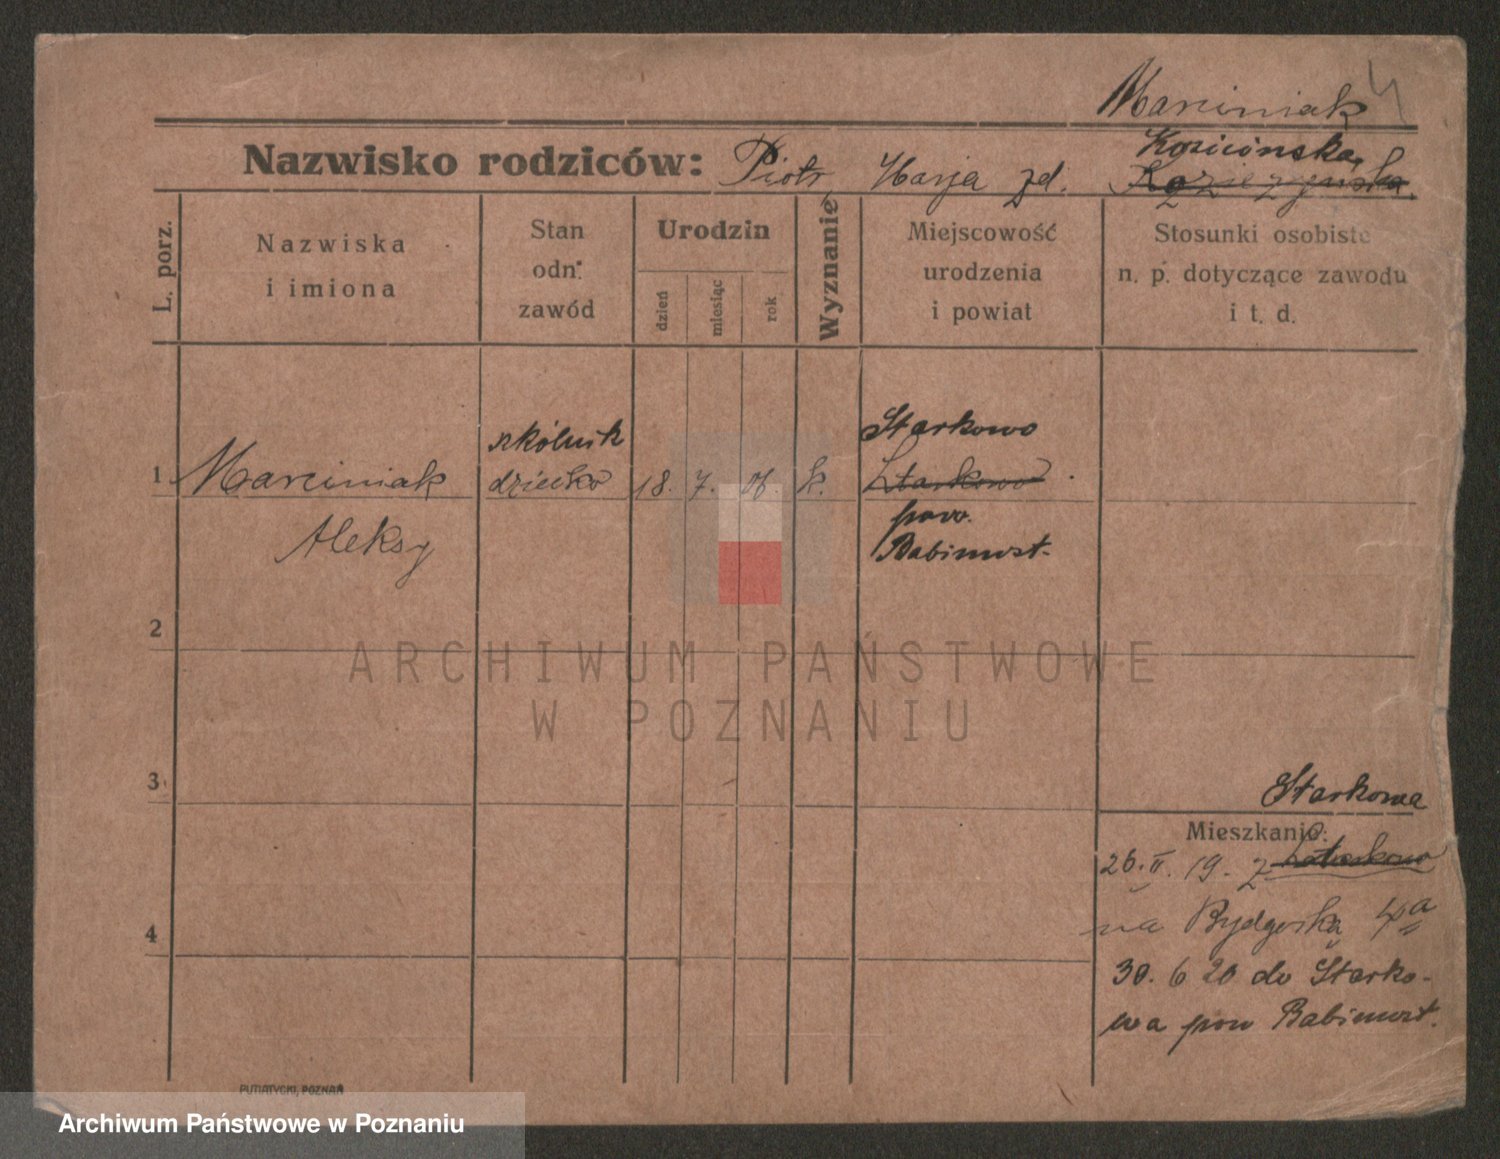 Marciniak 4
Kozicińska
Nazwisko rodziców: Piotr, Marja zd.
L. porz.
Nazwiska
i imiona
Stan
odn.
zawód
Urodzin
dzień
miesiąc
rok
Wyznanie
Miejscowość
urodzenia
i powiat
Stosunki osobiste
n. p. dotyczące zawodu
i t. d.
1 Marciniak
Aleksy
szkólnik
dziecko
18. 7. 06. k.
Starkowo
Starkowo
pow.
Babimost.
2
ARCHIWUM PAŃSTWOWE
W POZNANIU
3
Starkowa
Mieszkanie:
26. II. 19. z
na Bydgoska 4a
4
30. 6 20 do Starko-
wa pow Babimost.
PUTIATYCKI, POZNAŃ
Archiwum Państwowe w Poznaniu